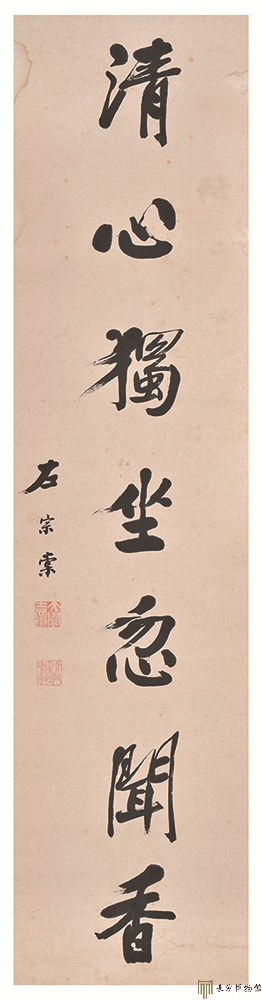 清心獨坐忽聞香
左宗棠
長沙博物館